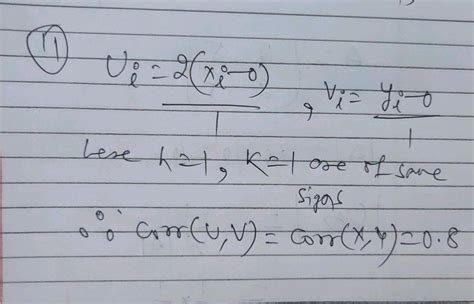 11
Uᵢ = 2(xᵢ-0)/1 , Vᵢ = yᵢ-0/1
here h=1, K=1 are of same
signs
∴ Corr(U,V) = Corr(X,Y) = 0.8